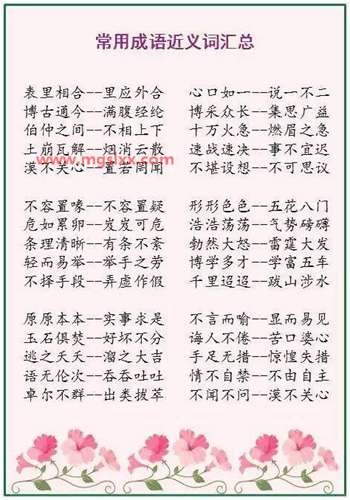 常用成语近义词汇总
表里相合--里应外合 心口如一--说一不二
博古通今--满腹经纶 博采众长--集思广益
伯仲之间--不相上下 十万火急--燃眉之急
土崩瓦解--烟消云散 速战速决--事不宜迟
www.mgslxx.com
漠不关心--置若罔闻 不堪设想--不可思议
不容置喙--不容置疑 形形色色--五花八门
危如累卵--岌岌可危 浩浩荡荡--气势磅礴
条理清晰--有条不紊 勃然大怒--雷霆大发
轻而易举--举手之劳 博学多才--学富五车
不择手段--弄虚作假 千里迢迢--跋山涉水
原原本本--实事求是 不言而喻--显而易见
玉石俱焚--好坏不分 诲人不倦--苦口婆心
逃之夭夭--溜之大吉 手足无措--惊惶失措
语无伦次--吞吞吐吐 情不自禁--不由自主
卓尔不群--出类拔萃 不闻不问--漠不关心